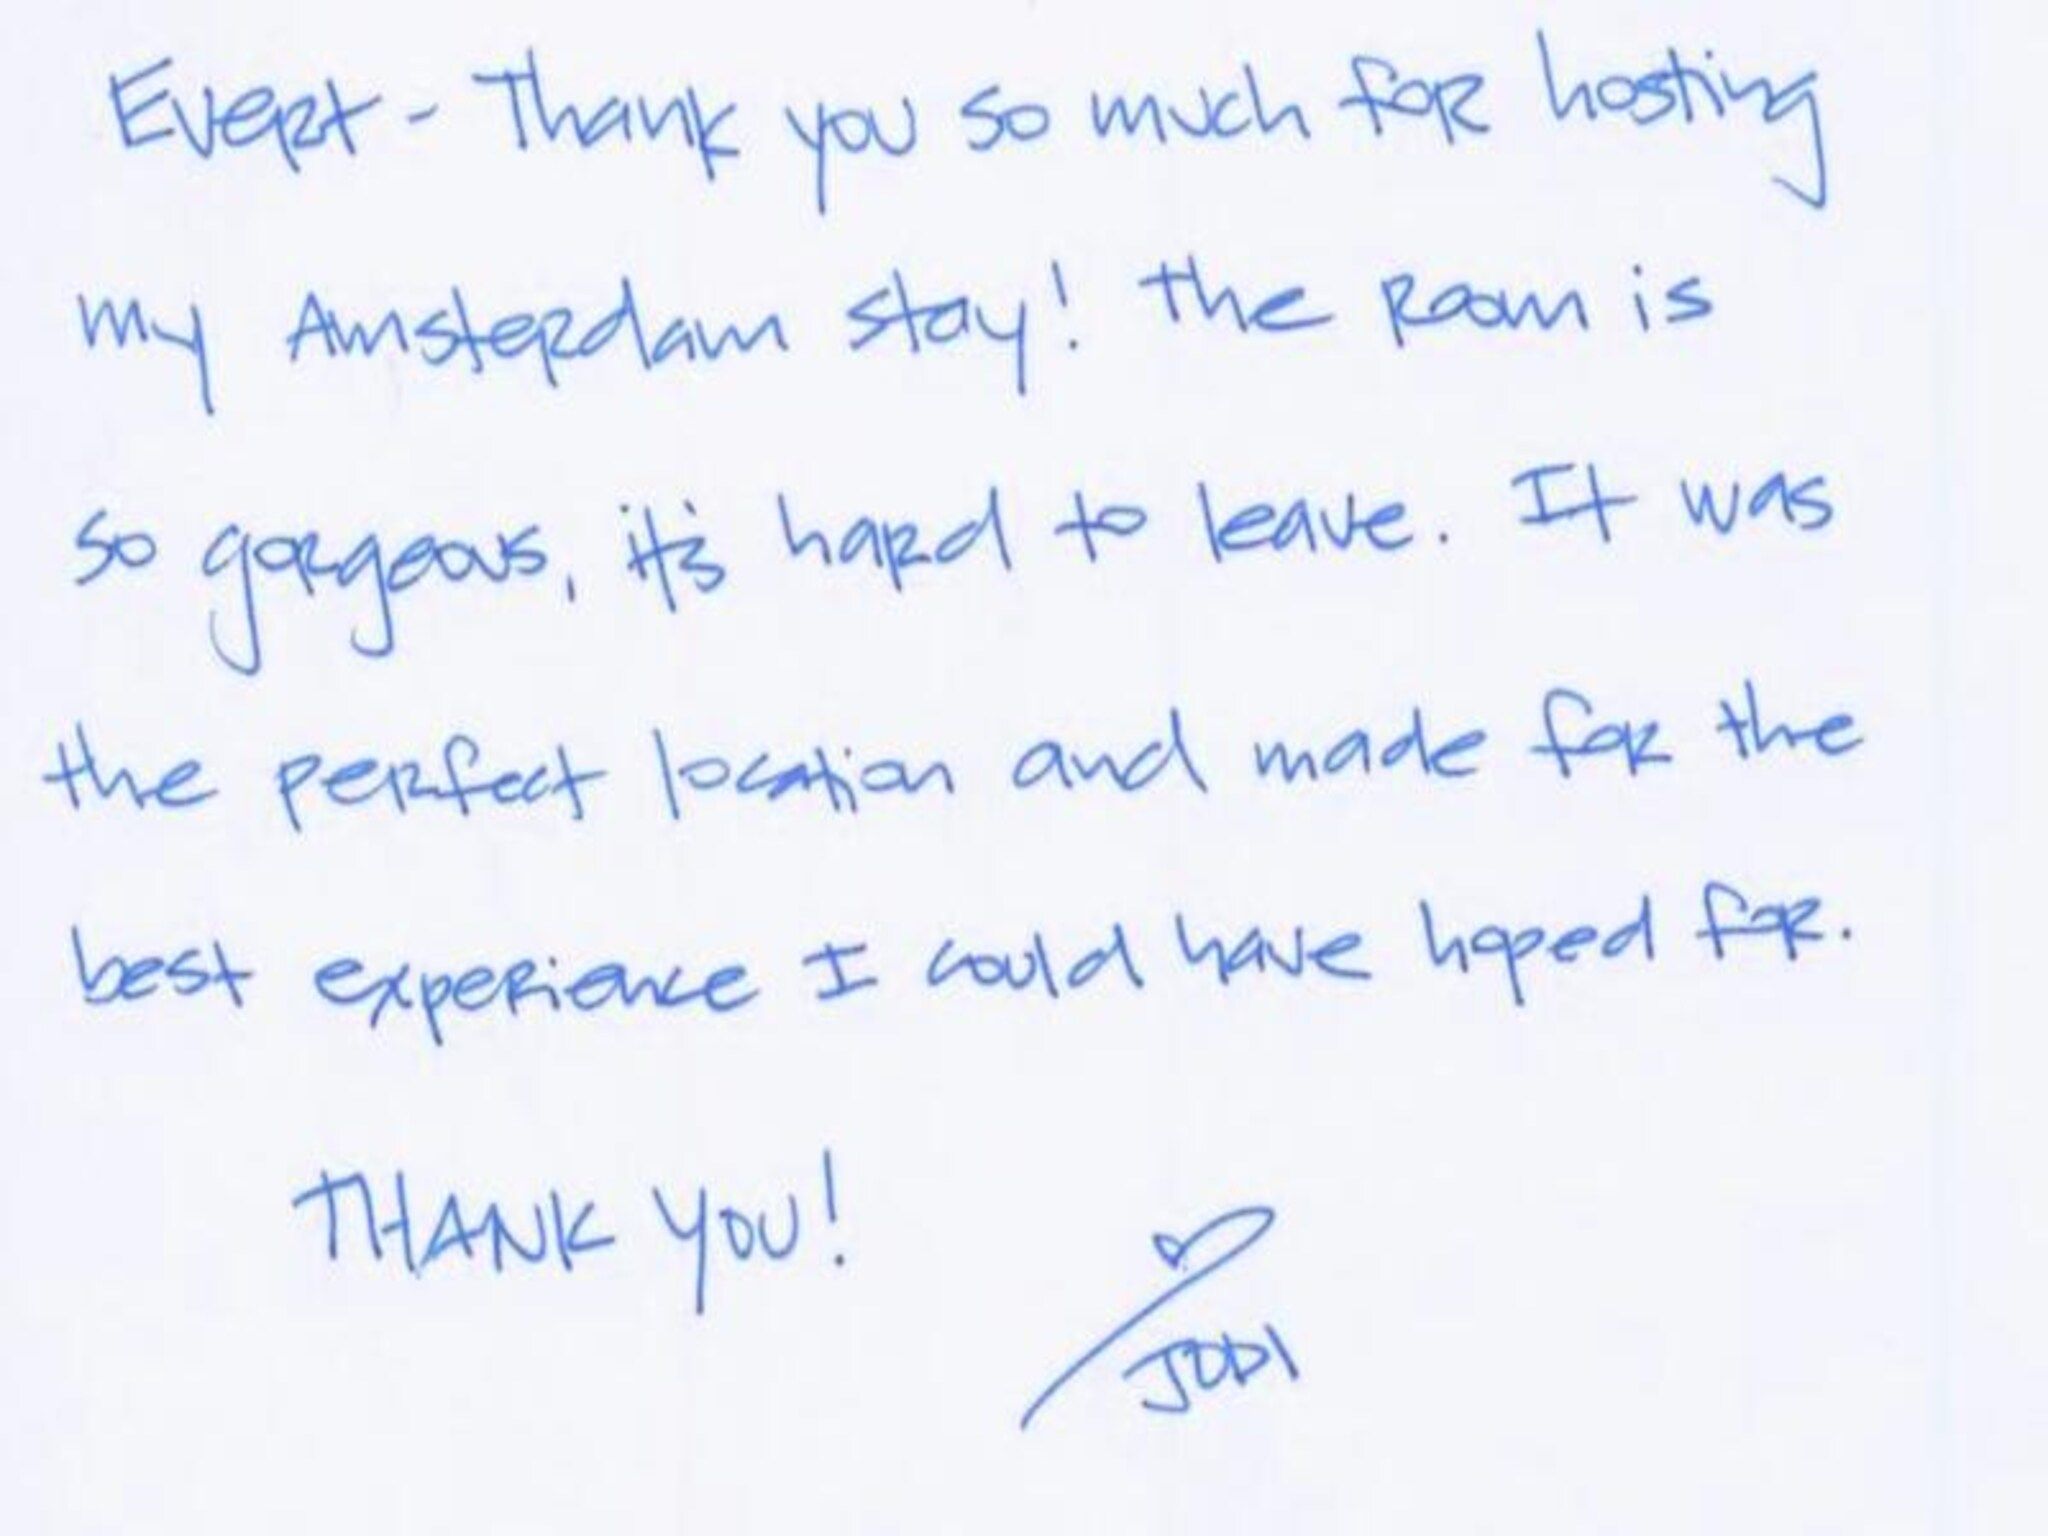 Evert - Thank you so much for hosting
my Amsterdam stay! The room is
so gorgeous, it's hard to leave. It was
the perfect location and made for the
best experience I could have hoped for.
THANK YOU!
JODI